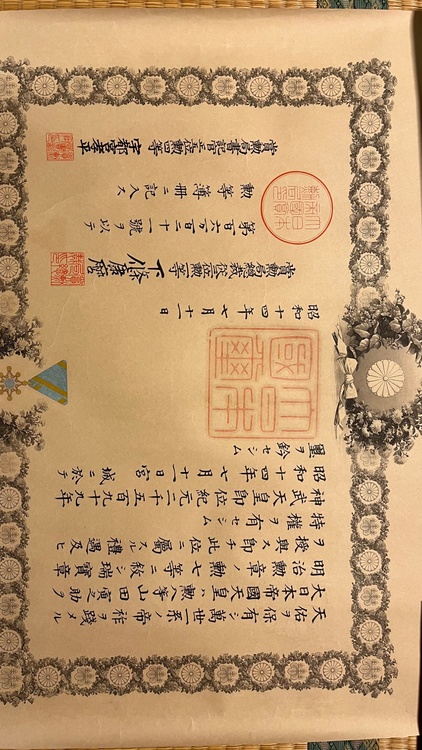 天佑ヲ保有シ萬世一系ノ帝祚ヲ踐メル
大日本帝國天皇ハ勲八等山田廣之助ヲ
明治勲章ノ勲七等ニ敍シ瑞寶章
ヲ授與ス即チ此位ニ屬スル禮遇及ヒ
特權ヲ有セシム
神武天皇即位紀元二千五百九十九年
昭和十四年七月十一日宮城ニ於テ
璽ヲ鈐セシム
大日本國璽
昭和十四年七月十一日
賞勲局總裁 下條康麿
第百六万百二十一號ヲ以テ
勲等簿冊ニ記入ス
賞勲局書記官正五位勲四等 宇都宮孝平